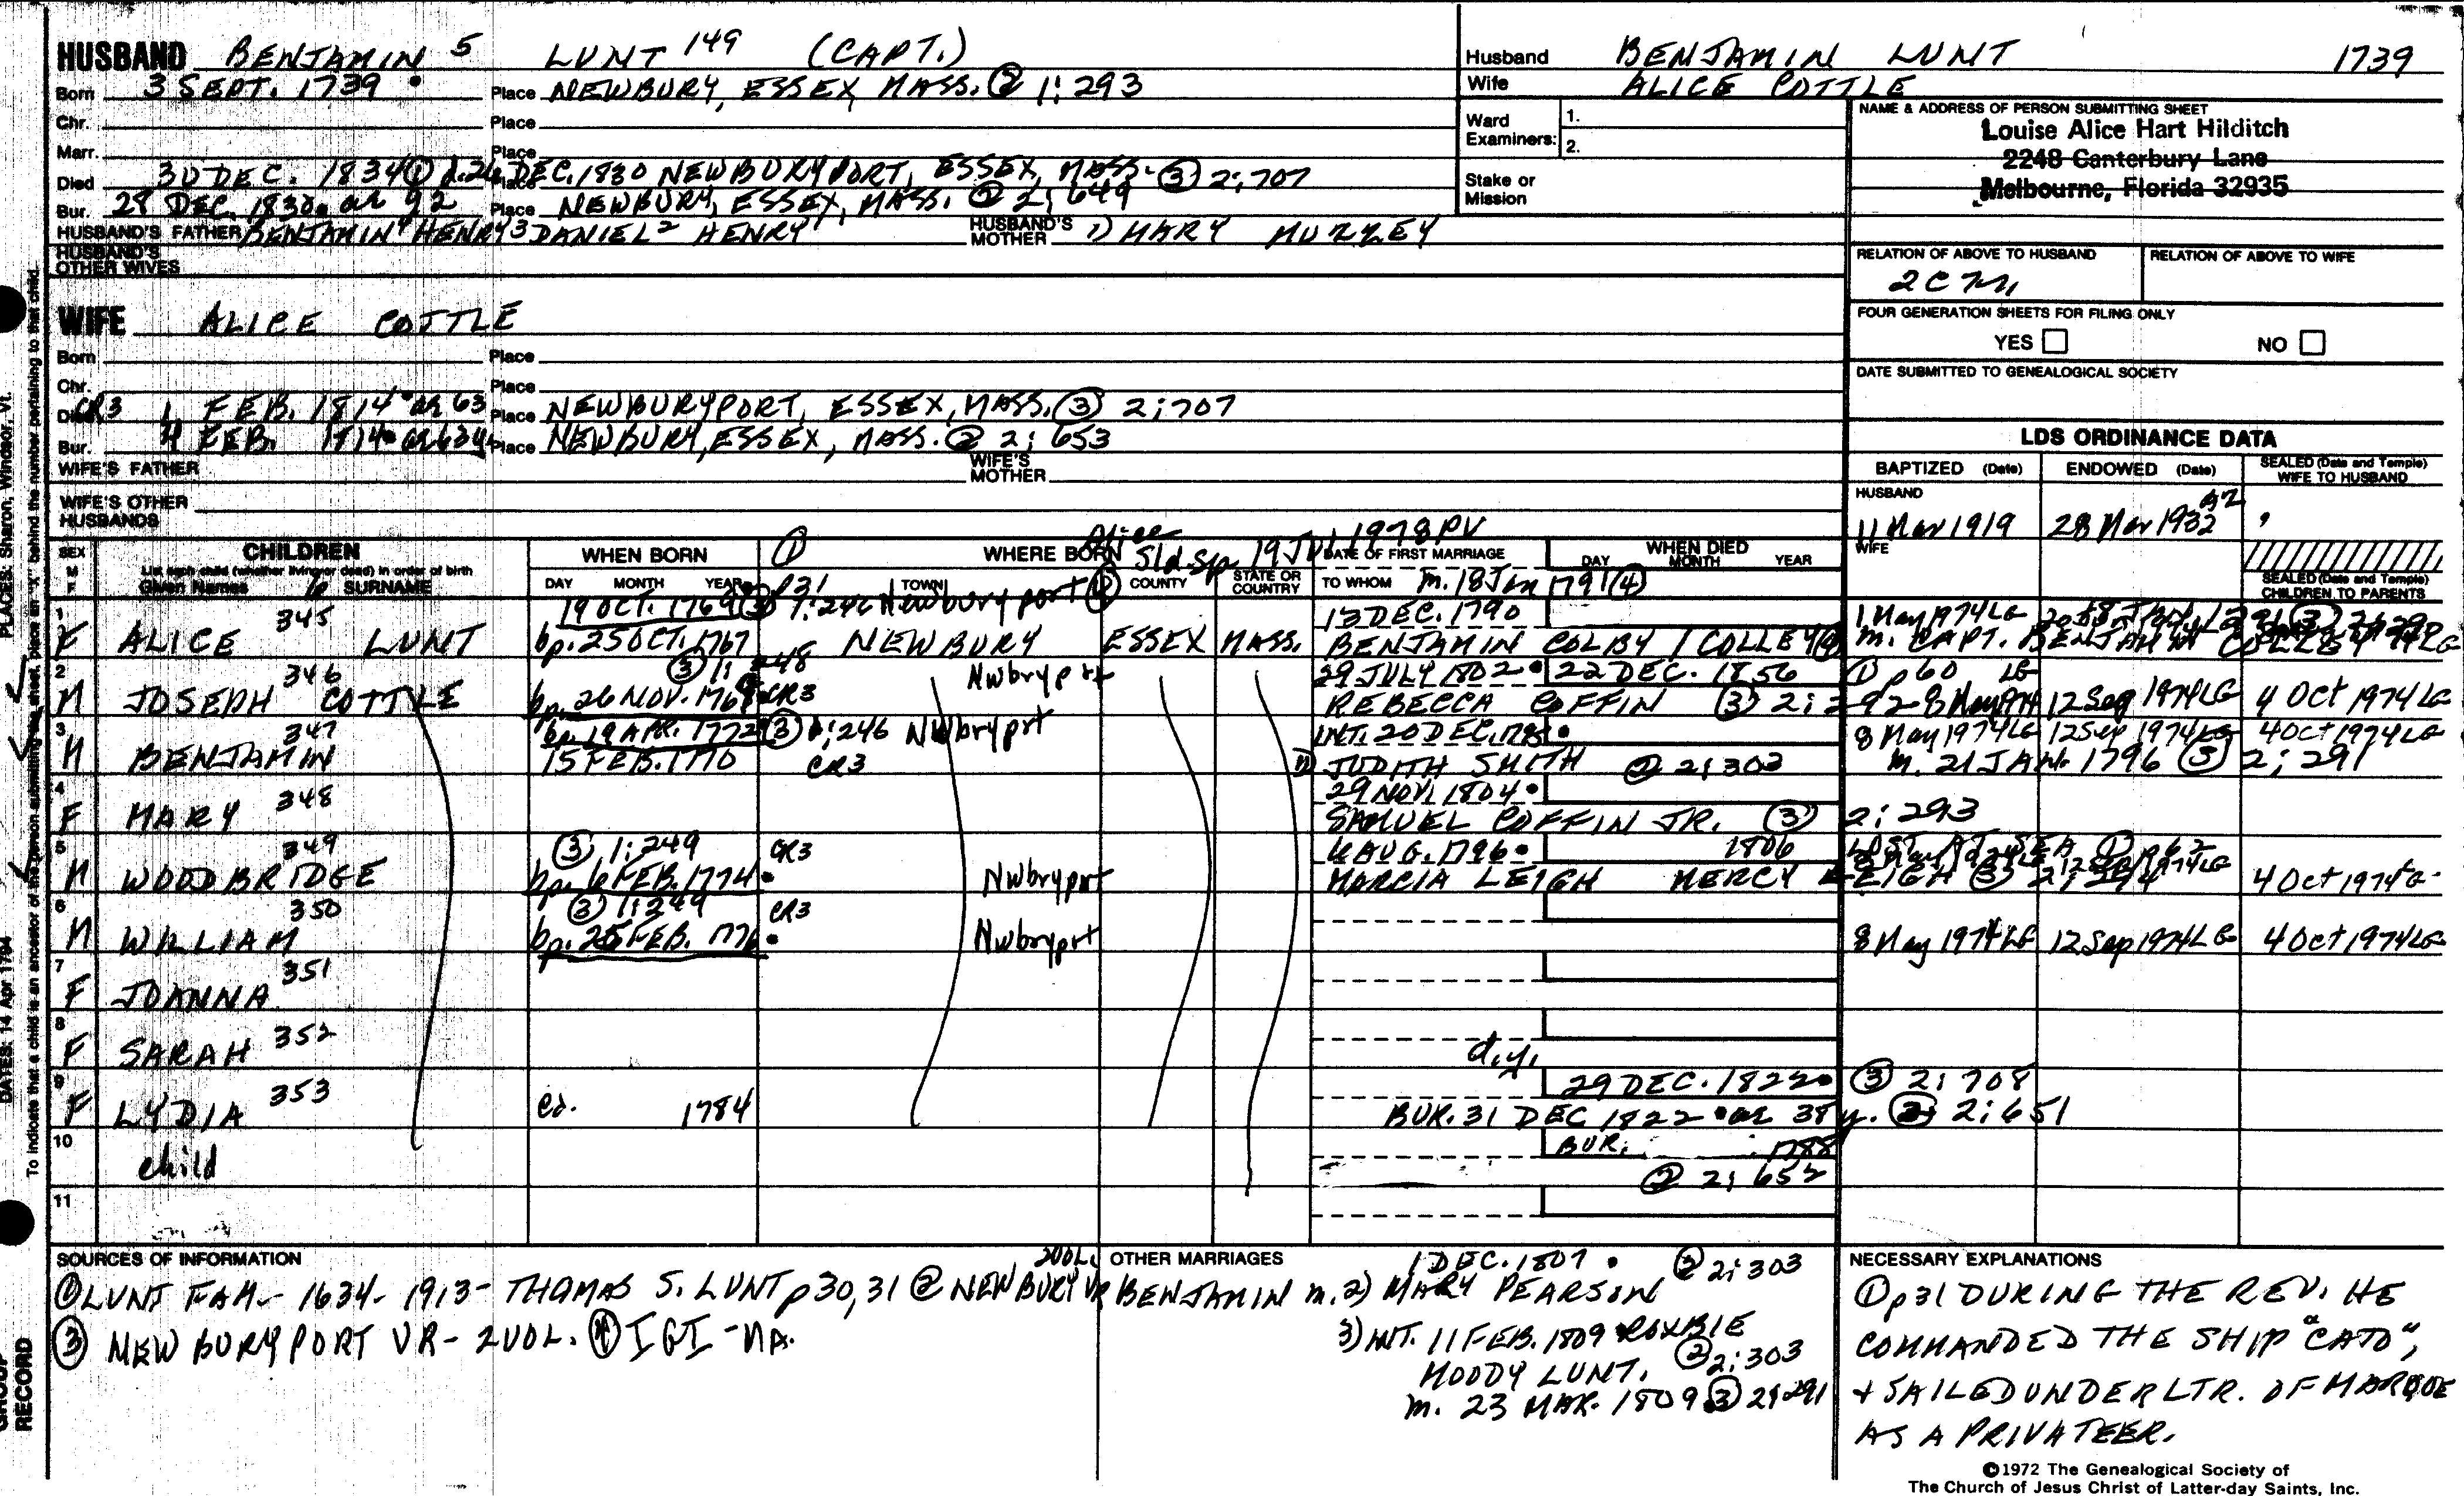 HUSBAND BENJAMIN 5 LUNT 149 (CAPT.)
Born 3 SEPT. 1739 Place NEWBURY, ESSEX, MASS. ② 1:293
Chr. Place
Marr. Place
Died 30 DEC. 1834 ① d. 26 DEC. 1830 NEWBURYPORT, ESSEX, MASS. ③ 2:707
Bur. 28 DEC. 1830 ae 92 Place NEWBURY, ESSEX, MASS. ② 2:649
HUSBAND'S FATHER BENJAMIN 4 HENRY 3 DANIEL 2 HENRY 1 HUSBAND'S MOTHER 1) MARY MUZZEY
HUSBAND'S OTHER WIVES
Husband BENJAMIN LUNT 1739
Wife ALICE COTTLE
Ward Examiners: 1.
2.
Stake or Mission
NAME & ADDRESS OF PERSON SUBMITTING SHEET
Louise Alice Hart Hilditch
2248 Canterbury Lane
Melbourne, Florida 32935
RELATION OF ABOVE TO HUSBAND RELATION OF ABOVE TO WIFE
FOUR GENERATION SHEETS FOR FILING ONLY
YES NO
DATE SUBMITTED TO GENEALOGICAL SOCIETY
WIFE ALICE COTTLE
Born Place
Chr. Place
Died CR3 1 FEB. 1814 ae 63 Place NEWBURYPORT, ESSEX, MASS. ③ 2:707
Bur. 4 FEB. 1814 ae 63 y Place NEWBURY, ESSEX, MASS. ② 2:653
WIFE'S FATHER WIFE'S MOTHER
WIFE'S OTHER HUSBANDS
LDS ORDINANCE DATA
BAPTIZED (Date) ENDOWED (Date) SEALED (Date and Temple) WIFE TO HUSBAND
HUSBAND
11 Mar 1919 28 Mar 1932 AZ
WIFE
SEALED (Date and Temple) CHILDREN TO PARENTS
Alice Sld. Sp. 19 1978 PV
SEX M F CHILDREN List each child (whether living or dead) in order of birth Given Names 6 SURNAME
WHEN BORN DAY MONTH YEAR
① WHERE BORN TOWN COUNTY STATE OR COUNTRY
DATE OF FIRST MARRIAGE TO WHOM
WHEN DIED DAY MONTH YEAR
m. 18 Jan 1791 ④
1 345 19 OCT. 1769 ③ 1:246 Newburyport ④ 13 DEC. 1790 1 May 1974 LG
F ALICE LUNT bp. 25 OCT. 1767 NEWBURY ESSEX MASS. BENJAMIN COLBY / COLLEY m. CAPT. BENJAMIN
2 346 ③ 1:248 Nwbryprt 29 JULY 1802 22 DEC. 1856 ① p 60 LG
M JOSEPH COTTLE bp. 26 NOV. 1768 CR3 REBECCA COFFIN ③ 2:292 8 May 1974 12 Sep 1974 LG 4 Oct 1974 LG
3 347 bp. 19 APR. 1772 ③ 1:246 Nwbryprt INT. 20 DEC. 1795 8 May 1974 LG 12 Sep 1974 LG 4 Oct 1974 LG
M BENJAMIN 15 FEB. 1770 CR3 1) JUDITH SMITH ② 2:303 m. 21 JAN. 1796 ③ 2:291
4 348 29 NOV. 1804
F MARY SAMUEL COFFIN JR. ③ 2:293
5 349 ③ 1:249 CR3 AUG. 1796 1806 LOST AT SEA ① p 62
M WOODBRIDGE bp. 6 FEB. 1774 Nwbryprt MARCIA LEIGH MERCY LEIGH ③ 4 Oct 1974 LG
6 350 ③ 1:249 CR3
M WILLIAM bp. 25 FEB. 1776 Nwbryprt 8 May 1974 LG 12 Sep 1974 LG 4 Oct 1974 LG
7 351
F JOANNA
8 352
F SARAH d.y.
9 353 29 DEC. 1822 ③ 2:708
F LYDIA ca. 1784 BUR. 31 DEC 1822 ae 38 y. ② 2:651
10 BUR. 1788
child ② 2:652
11
SOURCES OF INFORMATION
① LUNT FAM. - 1634 - 1913 - THOMAS S. LUNT p 30, 31 ② NEWBURY VR 2VOL.
③ NEWBURYPORT VR - 2VOL. ④ IGI - NA.
OTHER MARRIAGES
1 DEC. 1807 ② 2:303
BENJAMIN m. 2) MARY PEARSON
3) INT. 11 FEB. 1809 ROXBIE
MOODY LUNT. ② 2:303
m. 23 MAR. 1809 ③ 2:291
NECESSARY EXPLANATIONS
① p 31 DURING THE REV. HE
COMMANDED THE SHIP "CATO",
+ SAILED UNDER LTR. OF MARQUE
AS A PRIVATEER.
©1972 The Genealogical Society of
The Church of Jesus Christ of Latter-day Saints, Inc.
PLACES: Sharon, Windsor, Vt.
DATES: 14 Apr 1794
To indicate that a child is an ancestor of the person submitting the sheet, place an "X" behind the number pertaining to that child.
GROUP RECORD